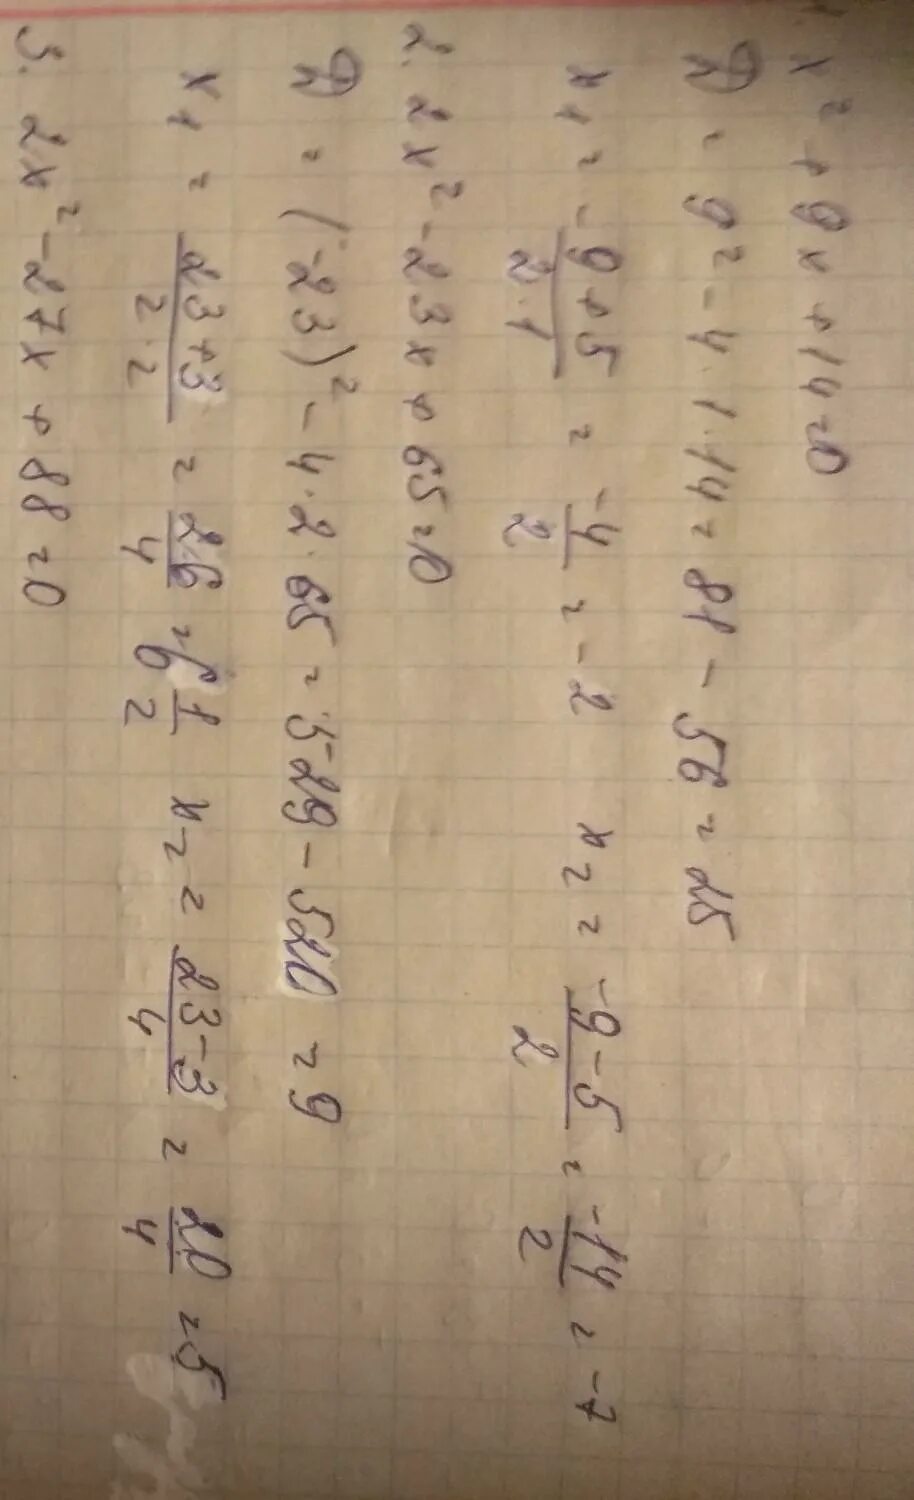 1.
x² + 9x + 14 = 0
D = 9² - 4·1·14 = 81 - 56 = 25
x₁ = (-9+5)/(2·1) = -4/2 = -2   x₂ = (-9-5)/2 = -14/2 = -7
2. 2x² - 23x + 65 = 0
D = (-23)² - 4·2·65 = 529 - 520 = 9
x₁ = (23+3)/(2·2) = 26/4 = 6 1/2   x₂ = (23-3)/4 = 20/4 = 5
3. 2x² - 27x + 88 = 0